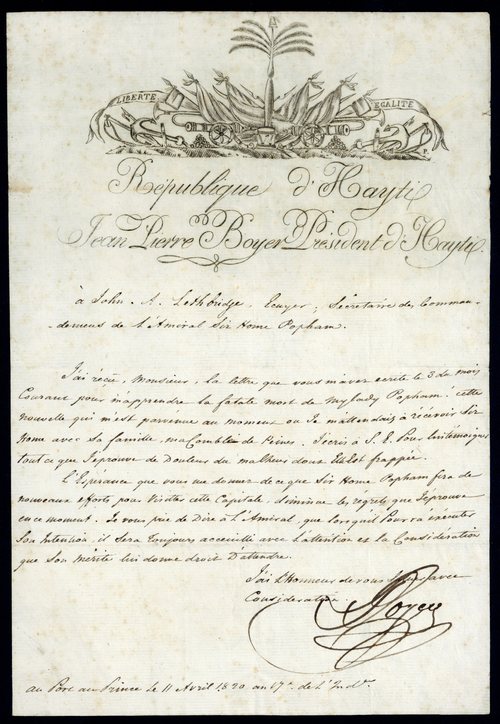 LIBERTÉ
EGALITÉ
République d'Hayti
Jean Pierre Boyer Président d'Hayti.
à John. A. Lethbridge, Ecuyer, Sécrétaire des Comman-
-demens de l'Amiral Sir Home Popham.
J'ai récu, Monsieur, la lettre que vous m'avez ecrite le 3 du mois
Courant pour m'apprendre la fatale mort de Mylady Popham: cette
nouvelle qui m'est parvenue au moment ou Je m'attendais à récévoir Sir
Home avec Sa famille, m'a Comblée de Peines. J'ecris à S. E. Pour lui témoigner
tout ce que J'eprouve de Douleurs du malheur dont Elle est frappée.
L'Esperance que vous me donnez de ce que Sir Home Popham fera de
nouveaux efforts pour Visiter cette Capitale, diminue les regrets que J'eprouve
en ce moment. Je vous prie de Dire à l'Amiral, que lorsqu'il Pourra éxécuter
Son Intention, il Sera toujours acceuille avec l'attention et la Consideration
que Son Mérite lui donne droit D'attendre.
J'ai l'Honneur de vous Saluer avec
Consideration.
Boyer
au Port au Prince le 11 Avril 1820 an 17e. de l'Indce.